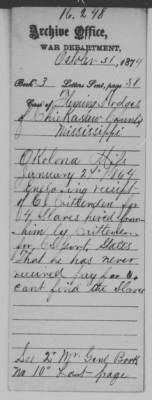 16.248
Archive Office,
WAR DEPARTMENT,
October 31, 1874
Book: 3 Letters Sent, page 58
Case of Fleming Hodges
of Chickasaw County,
Mississippi
Okolona Miss
January 2d 1864
Enclosing receipt
of C. Crittenden for
14 Slaves hired from
him by Crittenden
for C.S. Govt. States
that he has never
received pay for &
cant find the Slaves
See 2" Mr. Gov't Book
No. 10" Last page